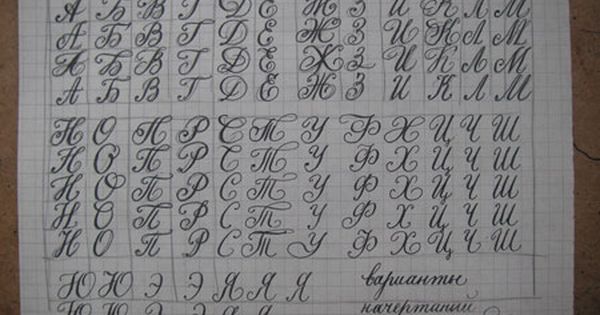 А Б В Г Д Е Ж З И К Л М
А Б В Г Д Е Ж З И К Л М
А Б В Г Д Е Ж З И К Л М
А Б В Г Д Е Ж З И К Л М
Н О П Р С Т У Ф Х Ц Ч Ш
Н О П Р С Т У Ф Х Ц Ч Ш
Н О П Р С Т У Ф Х Ц Ч Ш
Н О П Р С Т У Ф Х Ц Ч Ш
Н О П Р С Т У Ф Х Ц Ч Ш
Ю Ю Э Э Я Я Я варианты
Ю Ю Э Э Я Я начертаний